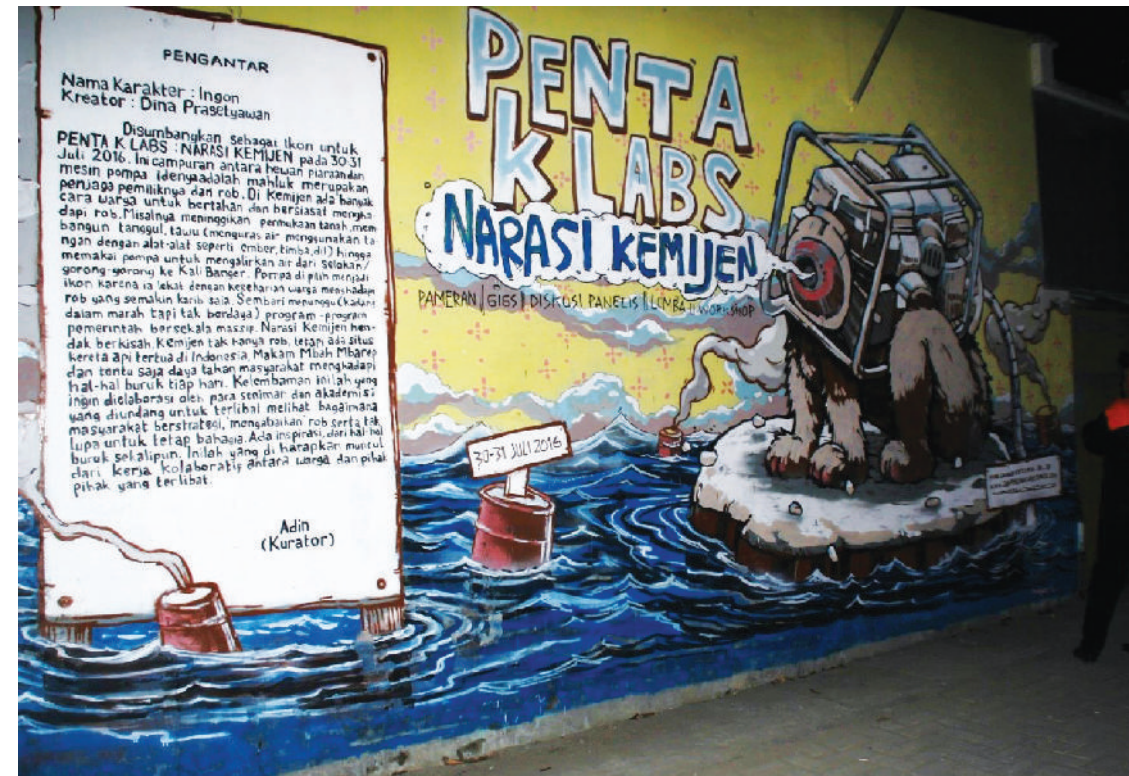 PENGANTAR
Nama Karakter : Ingon
Kreator : Dina Prasetyawan
Disumbangkan sebagai ikon untuk
PENTA K LABS : NARASI KEMIJEN pada 30-31
Juli 2016. Ini campuran antara hewan piaraan dan
mesin pompa idenya adalah mahluk merupakan
penjaga pemiliknya dan rob. Di Kemijen ada banyak
cara warga untuk bertahan dan bersiasat mengha-
dapi rob. Misalnya meninggikan permukaan tanah, mem
bangun tanggul, tawu (menguras air menggunakan ta-
ngan dengan alat-alat seperti ember, timba, dll) hingga
memakai pompa untuk mengalirkan air dari selokan/
gorong-gorong ke Kali Banger. Pompa di pilih menjadi
ikon karena ia lekat dengan keseharian warga menghadapi
rob yang semakin karib saja. Sembari menunggu (kadang
dalam marah tapi tak berdaya) program-program
pemerintah berskala massif. Narasi Kemijen hen-
dak berkisah. Kemijen tak hanya rob, tetapi ada situs
kereta api tertua di Indonesia, Makam Mbah Mbarep
dan tentu saja daya tahan masyarakat menghadapi
hal-hal buruk tiap hari. Kelembaman inilah yang
ingin dielaborasi oleh para seniman dan akademisi
yang diundang untuk terlibat melihat bagaimana
masyarakat berstrategi, mengabaikan rob serta tak
lupa untuk tetap bahagia. Ada inspirasi, dari hal-hal
buruk sekalipun. Inilah yang di harapkan muncul
dari kerja kolaboratif antara warga dan pihak
pihak yang terlibat.
Adin
(Kurator)
PENTA
K LABS
NARASI KEMIJEN
PAMERAN | GIGS | DISKUSI PANELIS | LOMBA | WORKSHOP
30-31 JULI 2016